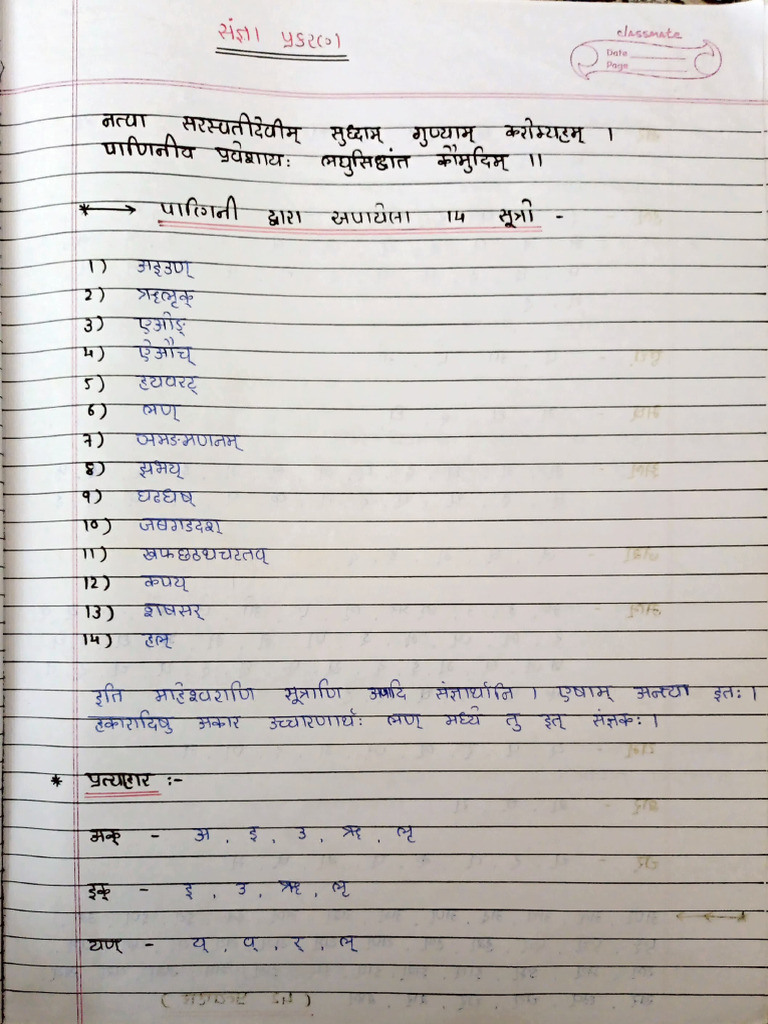 संज्ञा प्रकरण
classmate
Date
Page
नत्वा सरस्वतीदेवीम् सुध्दाम् गुण्याम् करोम्यहम् ।
पाणिनीय प्रवेशायः लघुसिद्धांत कौमुदिम् ।।
* → पाणिनी द्वारा अपायेला 14 सूत्रो -
1) अइउण्
2) ऋलृक्
3) एओङ्
4) ऐऔच्
5) हयवरट्
6) लण्
7) ञमङमणनम्
8) झभय्
9) घढधष्
10) जबगडदश्
11) खफछठथचटतव्
12) कपय्
13) शषसर्
14) हल्
इति माहेश्वराणि सूत्राणि अणादि संज्ञार्थानि । एषाम् अन्त्या इतः ।
हकारादिषु अकार उच्चारणार्थः लण् मध्ये तु इत् संज्ञकः ।
* प्रत्याहार :-
अक् - अ , इ , उ , ऋ , लृ
इक् - इ , उ , ऋ , लृ
यण् - य् , व् , र् , ल्